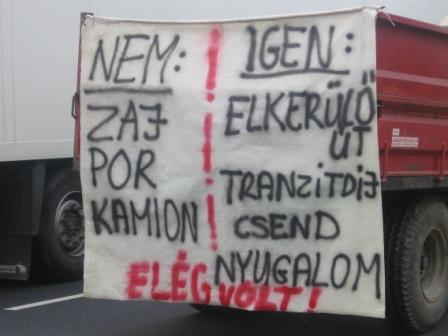 NEM:
ZAJ
POR
KAMION
!
IGEN:
ELKERÜLŐ
ÚT
TRANZITDÍJ
CSEND
NYUGALOM
ELÉG VOLT!